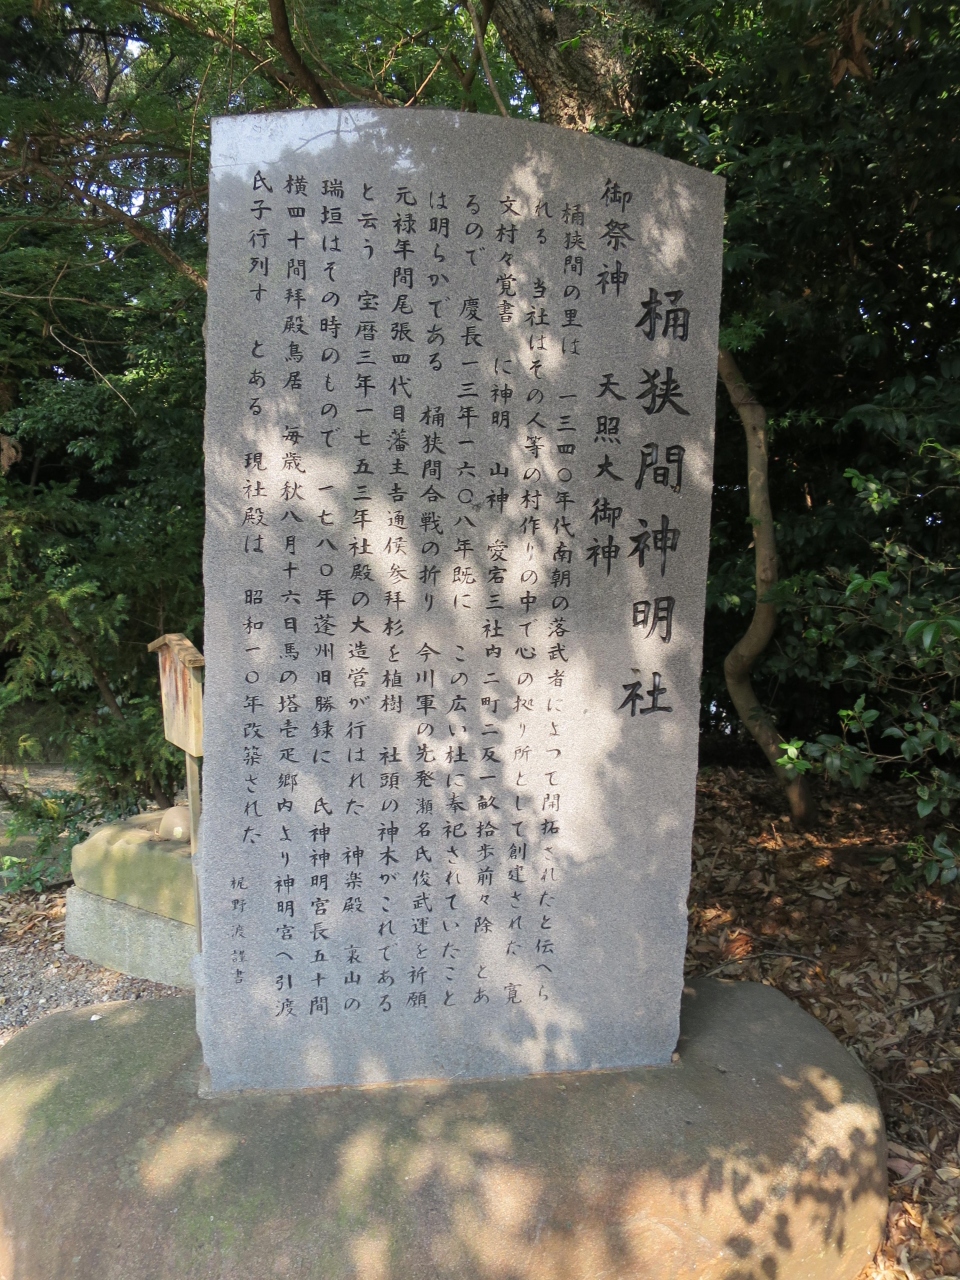 桶狭間神明社
御祭神 天照大御神
桶狭間の里は 一三四〇年代南朝の落武者によって開拓されたと伝へら
れる 当社はその人等の村作りの中で心の拠り所として創建された 寛
文村々覚書 に神明 山神 愛宕三社内二町二反一畝拾歩前々除 とあ
るので 慶長一三年一六〇八年既に この広い杜に奉祀されていたこと
は明らかである 桶狭間合戦の折り 今川軍の先発瀬名氏俊武運を祈願
元禄年間尾張四代目藩主吉通侯参拝杉を植樹 社頭の神木がこれである
と云う 宝暦三年一七五三年社殿の大造営が行はれた 神楽殿 裏山の
瑞垣はその時のもので 一七八〇年蓬州旧勝録に 氏神神明宮長五十間
横四十間拝殿鳥居 毎歳秋八月十六日馬の塔壱疋郷内より神明宮へ引渡
氏子行列す とある 現社殿は 昭和一〇年改築された
梶野渡謹書